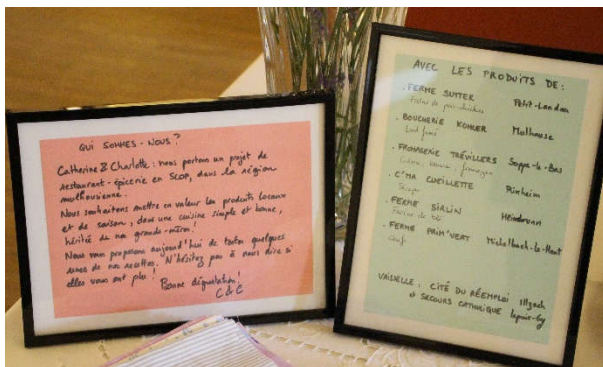 QUI SOMMES-NOUS ?
Catherine & Charlotte : nous portons un projet de
restaurant-épicerie en SCOP, dans la région
mulhousienne.
Nous souhaitons mettre en valeur les produits locaux
et de saison, dans une cuisine simple et bonne,
hérité de nos grands-mères !
Nous vous proposons aujourd'hui de tester quelques
unes de nos recettes. N'hésitez pas à nous dire si
elles vous ont plu !
Bonne dégustation !
C & C
AVEC LES PRODUITS DE :
. FERME SUTTER Petit-Landau
Farine de pois-chiches
. BOUCHERIE KOHLER Mulhouse
Lard fumé
. FROMAGERIE TRÉVILLERS Soppe-le-Bas
Crème, beurre, fromages
. C'MA CUEILLETTE Rixheim
. FERME SIRLIN
Farine de blé
. FERME PRIM'VERT Michelbach-le-Haut
Oeufs
VAISSELLE : CITÉ DU RÉEMPLOI Illzach
et SECOURS CATHOLIQUE